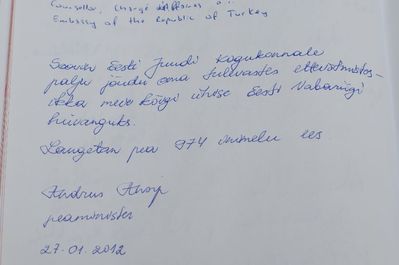 Counsellor, Chargé d'Affaires a.i.
Embassy of the Republic of Turkey
Soovin Eesti Juudi Kogukonnale
palju jõudu oma tulevastes ettevõtmistes -
ikka meie kõigi ühise Eesti Vabariigi
hüvanguks.
Langetan pea 974 inimelu ees
Andrus Ansip
peaminister
27.01.2012